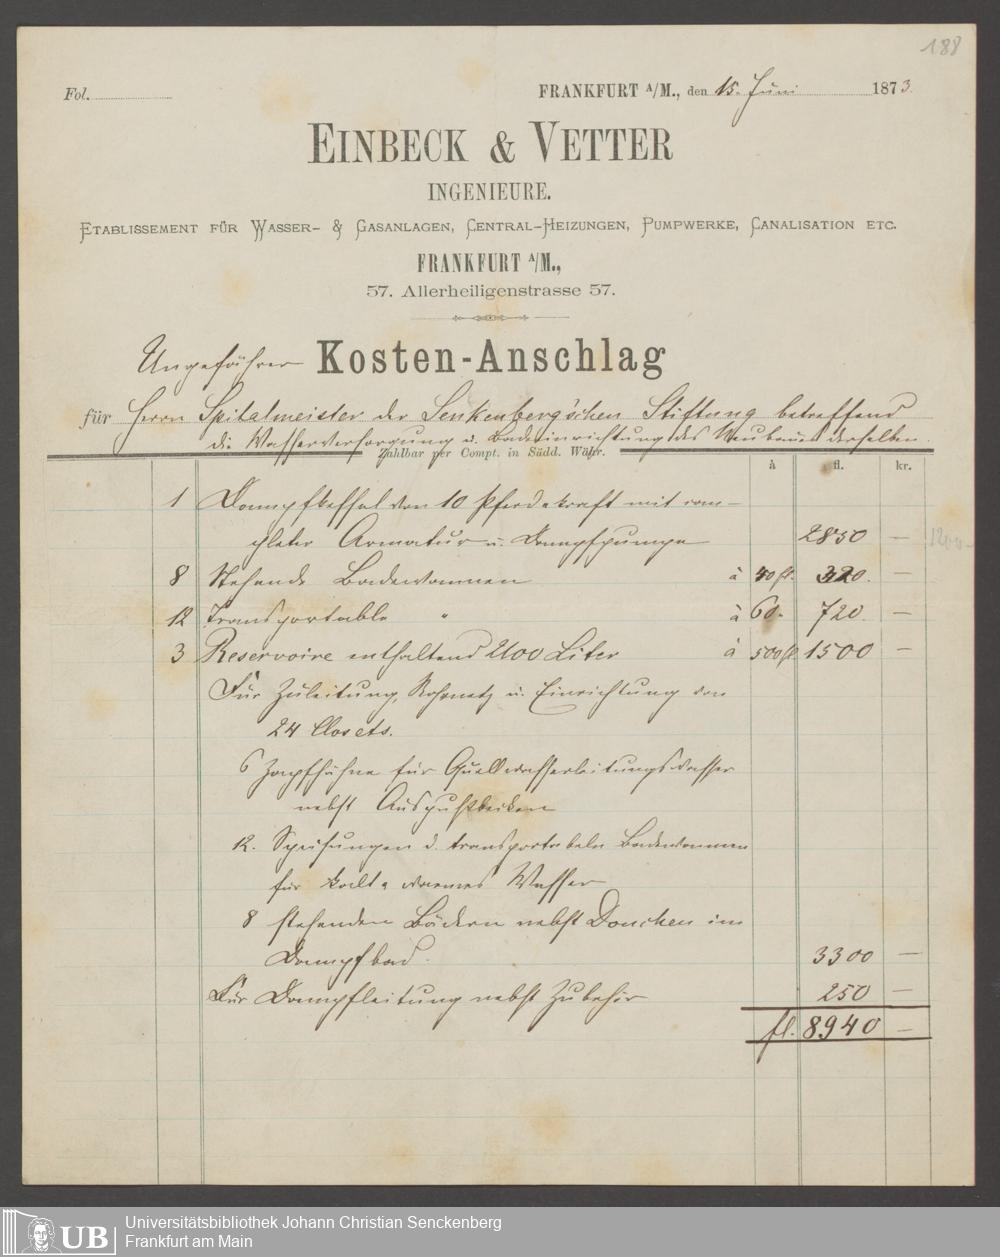 188
Fol.
FRANKFURT A/M., den 15. Juni 1873.
EINBECK & VETTER
INGENIEURE.
ETABLISSEMENT FÜR WASSER- & GASANLAGEN, CENTRAL-HEIZUNGEN, PUMPWERKE, CANALISATION ETC.
FRANKFURT A/M.,
57. Allerheiligenstrasse 57.
Ungefährer Kosten-Anschlag
für Herrn Spitalmeister der Senkenberg'schen Stiftung betreffend
die Wasserversorgung u. Badeeinrichtung des Neubaues derselben.
Zahlbar per Compt. in Südd. Währ.
à fl. kr.
1 Dampfkessel von 10 Pferdekraft mit com-
pleter Armatur u. Dampfpumpe 2850 — 1200-
8 Stehende Badewannen à 40 fl. 320. —
12 Transportable " à 60. 720. —
3 Reservoire enthaltend 2100 Liter à 500 fl 1500 —
Für Zuleitung, Rohrnetz u. Einrichtung von
24 Closets.
6 Zapfhähne für Quellwasserleitungswasser
nebst Ausgußbecken
12. Speisungen d. transportabeln Badewannen
für kalt & warmes Wasser
8 stehenden Bädern nebst Douchen im
Dampfbad. 3300 —
Für Dampfleitung nebst Zubehör 250 —
fl. 8940 —
UB
Universitätsbibliothek Johann Christian Senckenberg
Frankfurt am Main